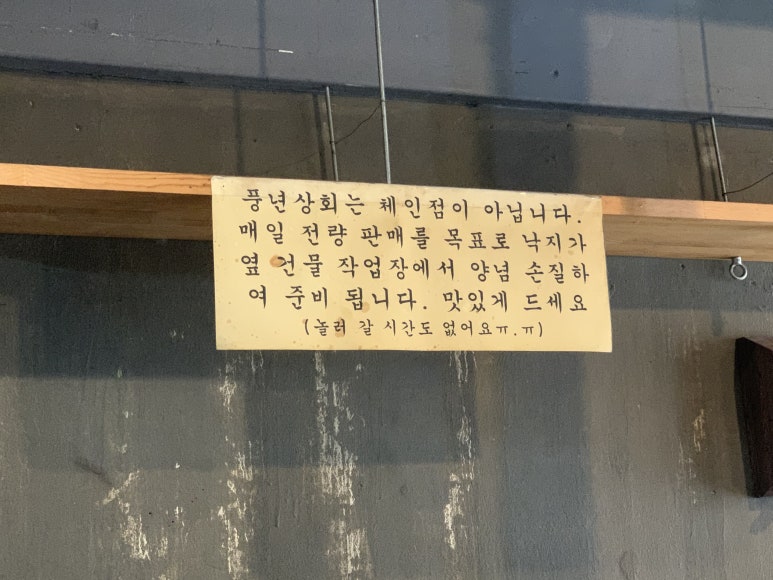 풍년상회는 체인점이 아닙니다.
매일 전량 판매를 목표로 낙지가
옆 건물 작업장에서 양념 손질하
여 준비 됩니다. 맛있게 드세요
(놀러 갈 시간도 없어요ㅠ.ㅠ)